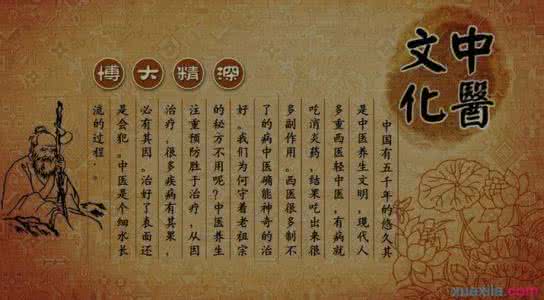 中醫
文化
博大精深
中国有五千年的悠久其
是中医养生文明，现代人
多重西医轻中医，有病就
吃消炎药，结果吃出来很
多副作用。西医很多制不
了的病中医能神奇的治
好。我们为何守着老祖宗
的秘方不用呢？中医养生
注重预防胜于治疗，从因
治疗，很多疾病有其果，
必有其因。治好了表面还
是会犯。中医是个细水长
流的过程。
xuexila.com